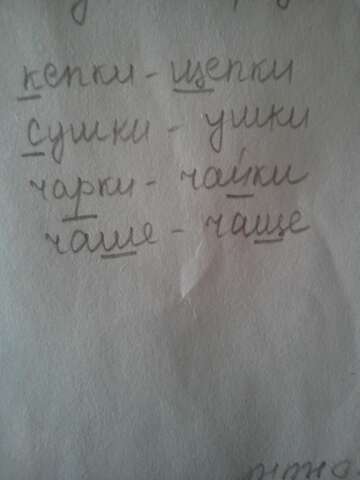 кепки - щепки
сушки - ушки
чарки - чайки
чаше - чаще